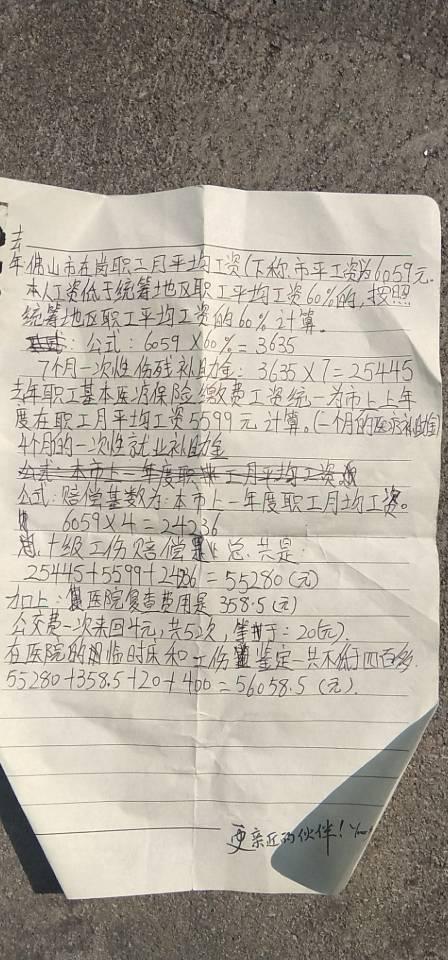 去
年佛山市在岗职工月平均工资(下称市平工资)为6059元.
本人工资低于统筹地区职工平均工资60%的,按照
统筹地区职工平均工资的60%计算。
公式:6059×60%=3635
7个月一次性伤残补助金:3635×7=25445
去年职工基本医疗保险缴费工资统一为市上上年
度在职工月平均工资5599元计算。(一个月的医疗补助金)
4个月的一次性就业补助金
公式:本市上一年度职工月平均工资
公式:赔偿基数为:本市上一年度职工月均工资。
6059×4=24236
总.十级工伤赔偿总共是:
25445+5599+24236=55280(元)
加上:医院复查费用是358.5(元)
公交费一次来回4元,共5次,等于=20(元).
在医院的相临时床和工伤鉴定一共不低于四百多.
55280+358.5+20+400=56058.5(元).
更亲近的伙伴!